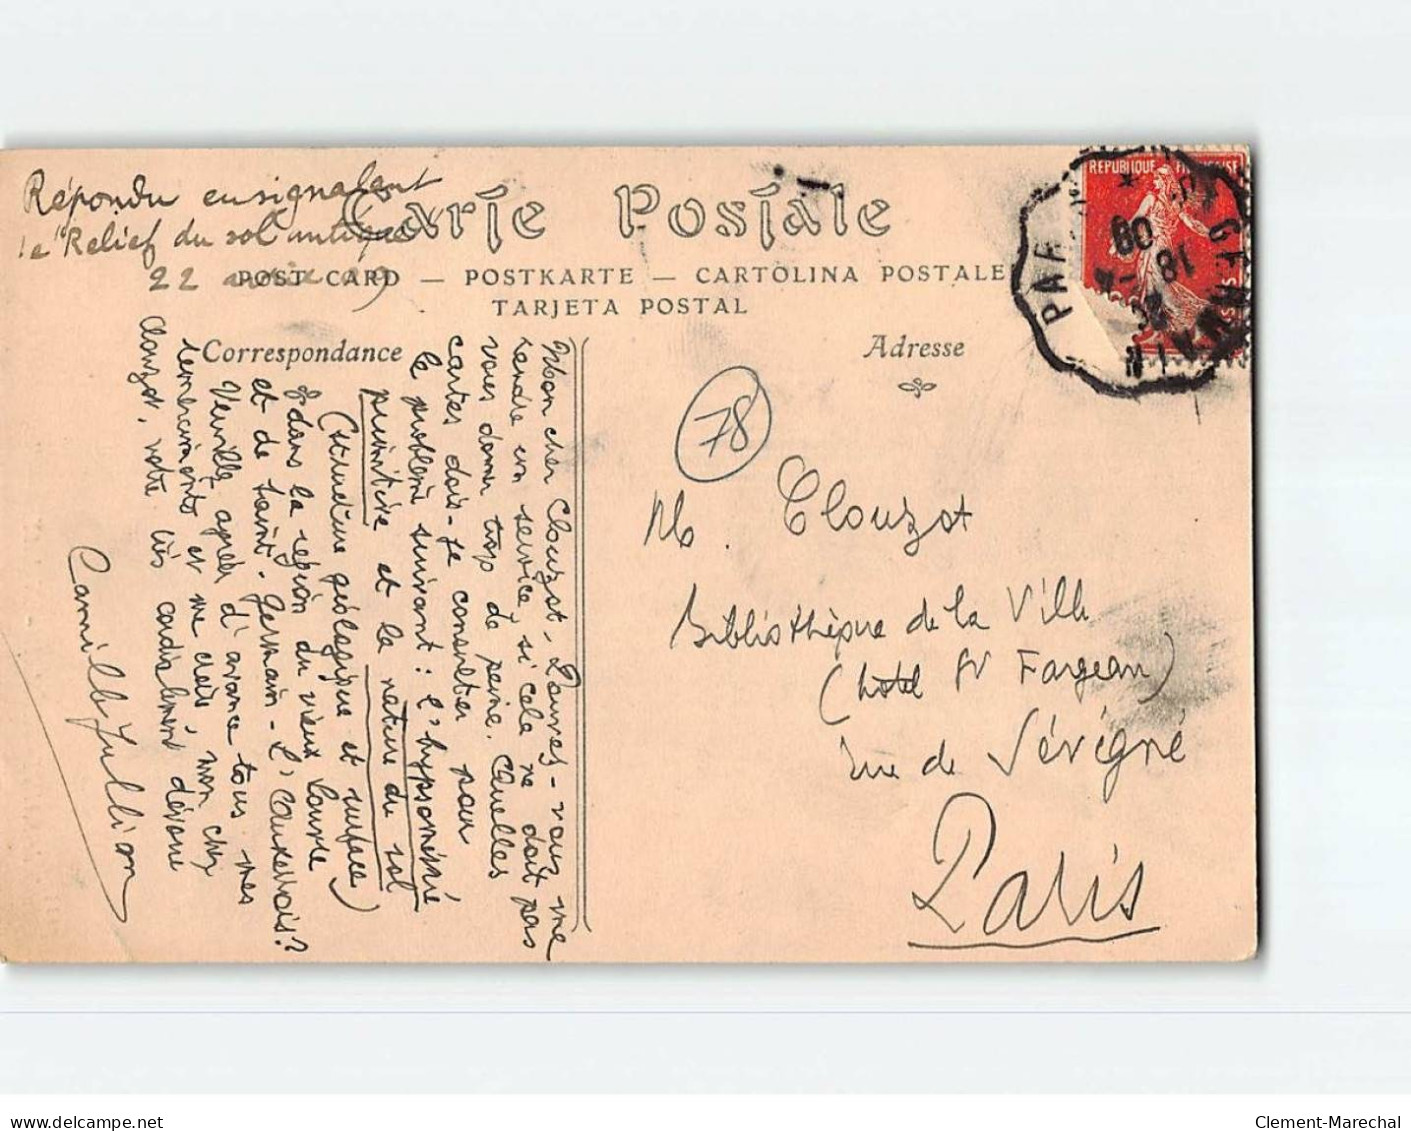 Répondu en signalant
le "Relief du sol antique
22
Carte Postale
POST CARD — POSTKARTE — CARTOLINA POSTALE
TARJETA POSTAL
Correspondance
Adresse
REPUBLIQUE FRANÇAISE
PAR
18 - 4
08
78
Mon cher Clouzot, Pouvez-vous me
rendre un service, si cela ne doit pas
vous donner trop de peine. Quelles
cartes dois-je consulter pour
le problème suivant : l'hypsométrie
primitive et la nature du sol
(structure géologique et surface)
dans la région du vieux Louvre
et de Saint-Germain-l'Auxerrois ?
Veuillez agréer d'avance tous mes
remerciements et me croire, mon cher
Clouzot, votre très cordialement dévoué
Camille Jullian
M. Clouzot
Bibliothèque de la Ville
(hôtel St Fargeau)
rue de Sévigné
Paris
delcampe.net
Clement-Marechal